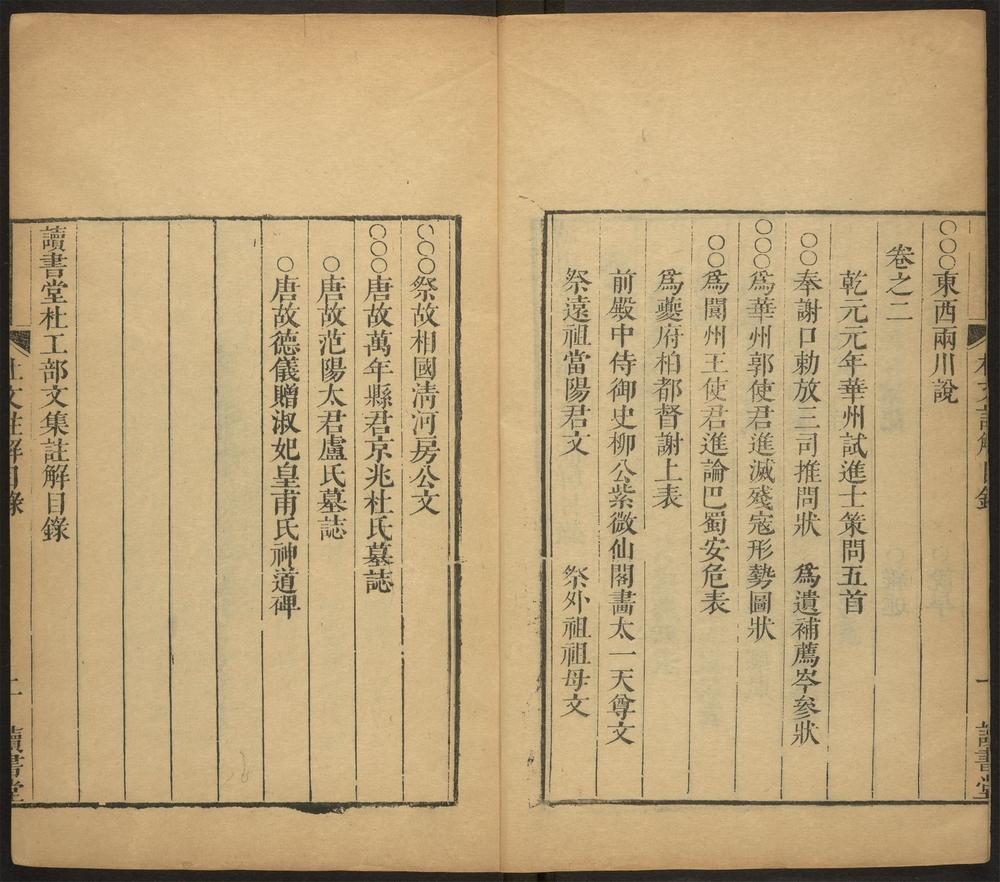 杜文註解目錄 一 讀書堂
○○○東西兩川說
卷之二
乾元元年華州試進士策問五首
○○奉謝口勅放三司推問狀 爲遺補薦岑參狀
○○○爲華州郭使君進滅殘寇形勢圖狀
○○爲閬州王使君進論巴蜀安危表
爲夔府柏都督謝上表
前殿中侍御史柳公紫微仙閣畫太一天尊文
祭遠祖當陽君文 祭外祖祖母文
○○○祭故相國清河房公文
○○○唐故萬年縣君京兆杜氏墓誌
○唐故范陽太君盧氏墓誌
○唐故德儀贈淑妃皇甫氏神道碑
讀書堂杜工部文集註解目錄
杜文註解目錄 二 讀書堂